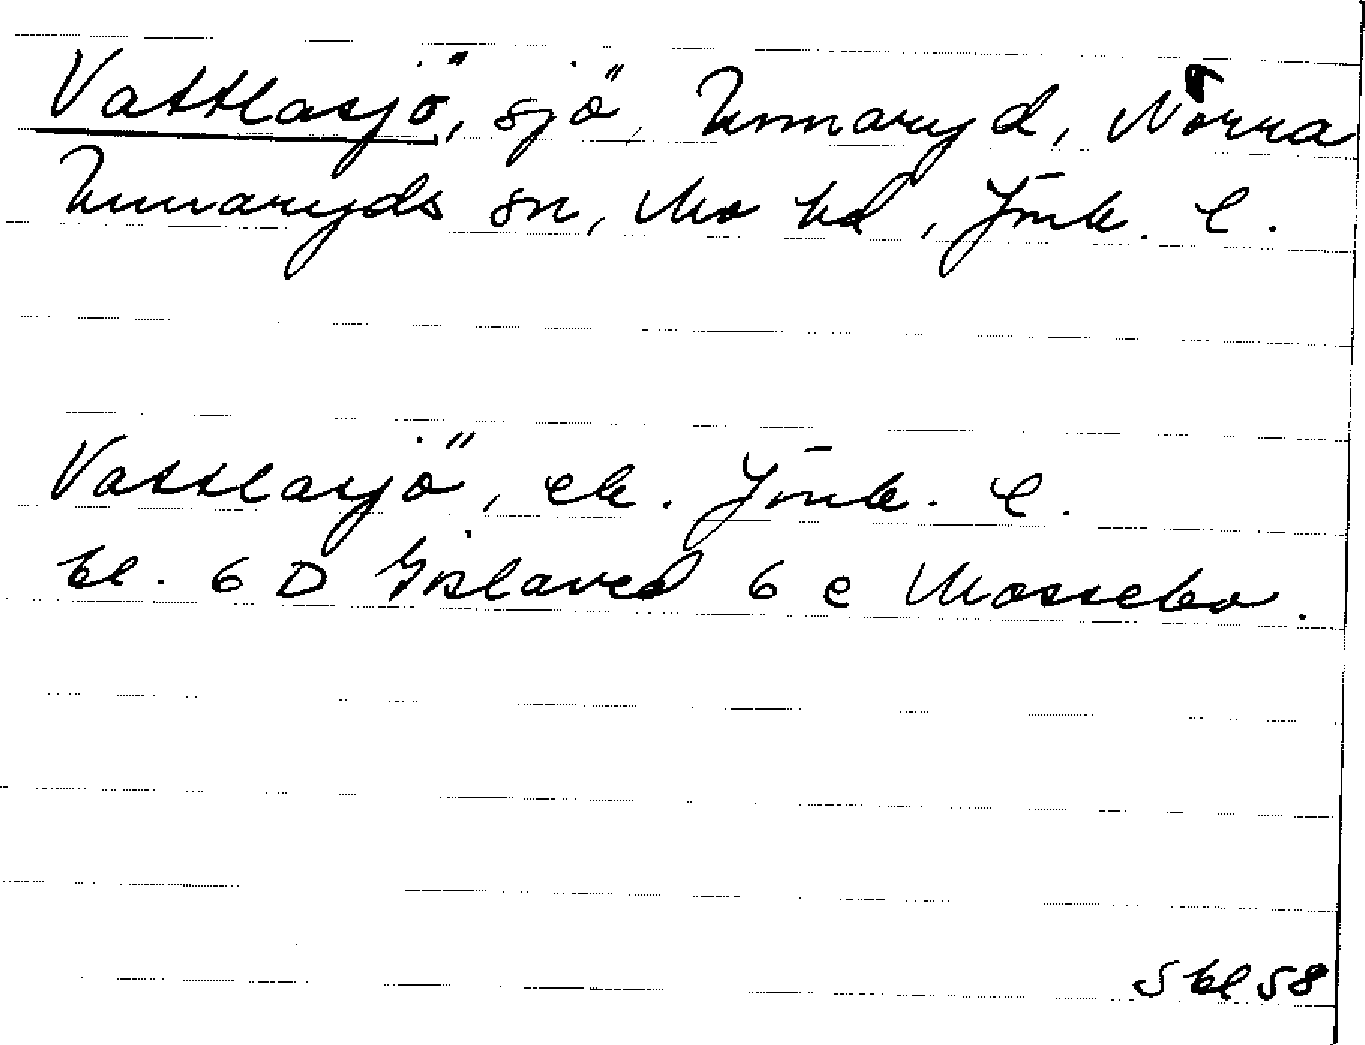 Vattlasjö, sjö, Unnaryd, Norra
Unnaryds sn, Mo hd, Jönk. l.
Vattlasjö, ek. Jönk. l.
bl. 6 D Gislaved 6 c Mossebo.
S bl 58